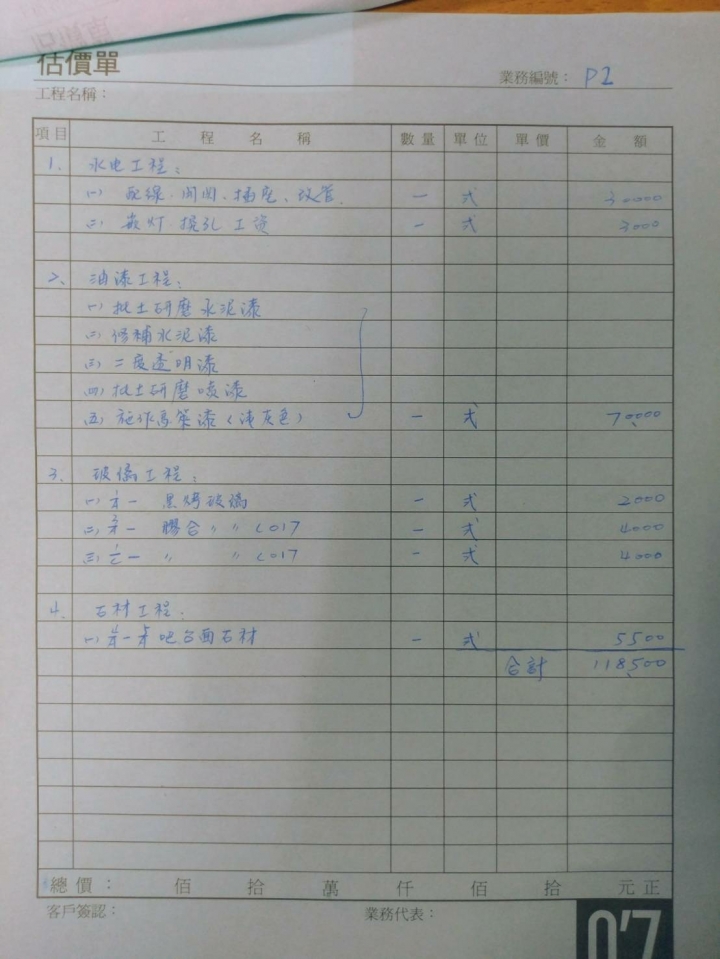 估價單
業務編號： P2
工程名稱：
項目 工程名稱 數量 單位 單價 金額
1. 水电工程：
(一) 配線、開関、插座、改管. 一 式 30000
(二) 崁灯 挖孔 工資 一 式 3000
2、 油漆工程：
(一) 批土研磨水泥漆
(二) 修補水泥漆
(三) 二度透明漆
(四) 批土研磨噴漆
(五) 施作馬萊漆（淺灰色） 一 式 70000
3. 玻璃工程：
(一) 一 黑烤玻璃 一 式 2000
(二) 一 膠合 〃 〃 C017 一 式 4000
(三) 一 〃 〃 C017 一 式 4000
4. 石材工程.
(一) 一 吧台面石材 一 式 5500
合計 118500
總價： 佰 拾 萬 仟 佰 拾 元正
客戶簽認： 業務代表：
0'7